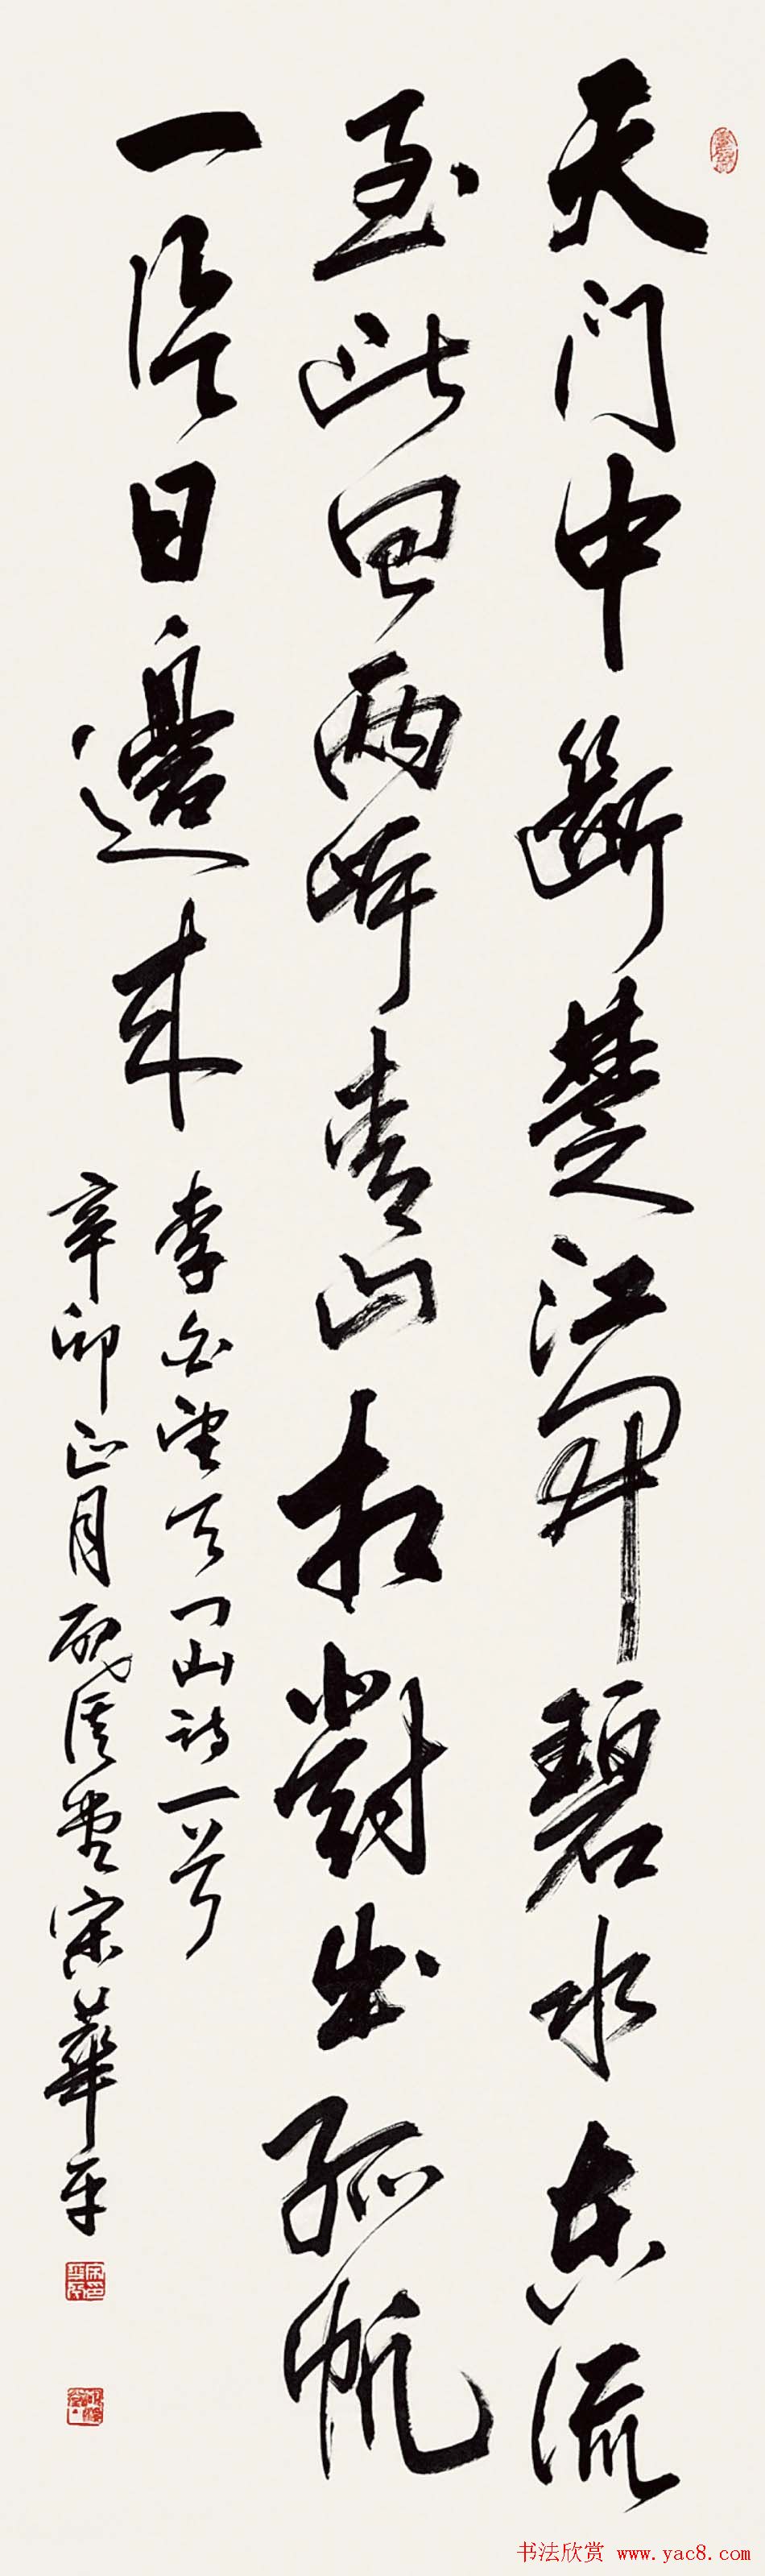 天门中斷楚江開碧水东流
至此回两岸青山相對出孤帆
一片日邊来
李白望天门山詩一首
辛卯正月 堂宋華平
书法欣赏 www.yac8.com